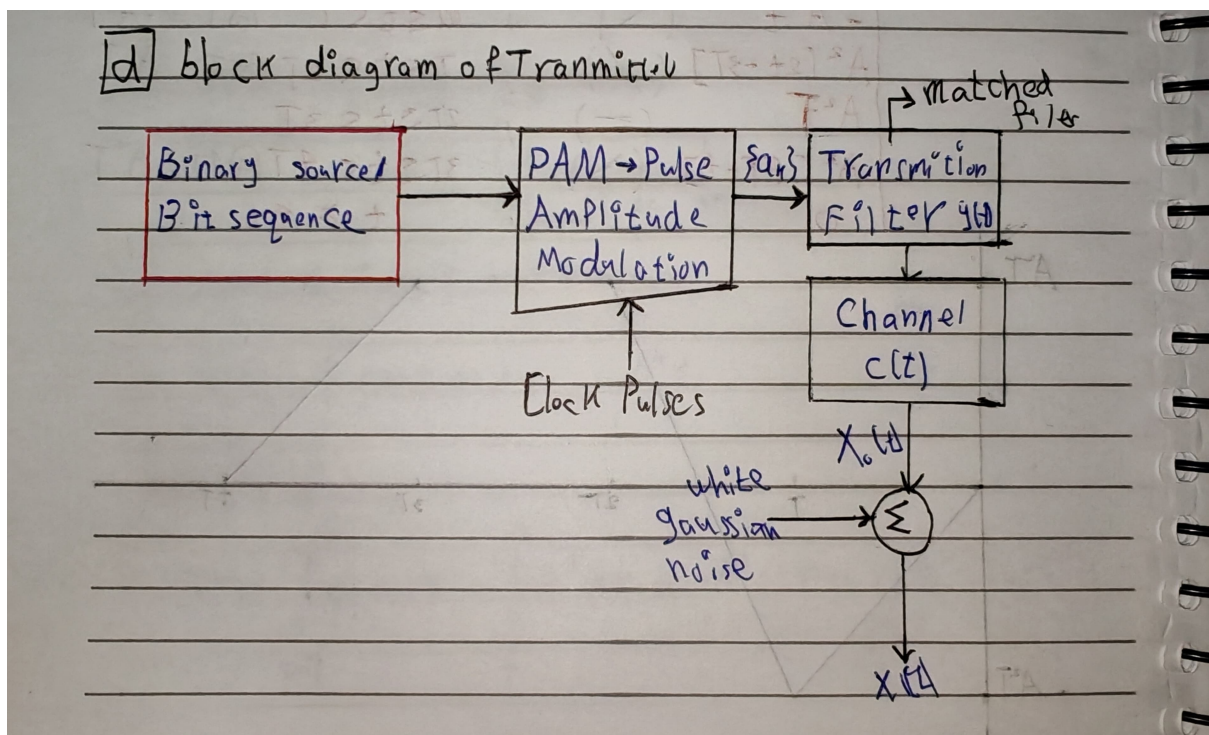 d block diagram of Tranmitter
matched
filer
Binary source/
Bit sequence
PAM → Pulse
Amplitude
Modulation
{an}
Transmition
Filter g(t)
Channel
c(t)
Clock Pulses
X₀(t)
white
gaussian
noise
Σ
X(t)